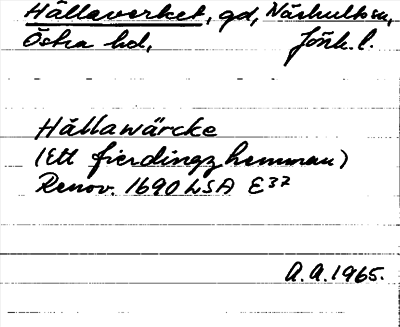 Hällaverket, gd, Näshults sn,
Östra hd, Jönk. l.
Hällawärcke
(Ett fierdingz hemman)
Renov. 1690 LSA E37
A.A. 1965.